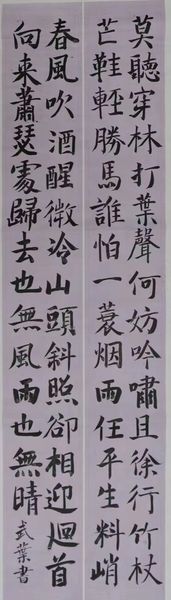 莫聽穿林打葉聲何妨吟嘯且徐行竹杖
芒鞋輕勝馬誰怕一蓑烟雨任平生料峭
春風吹酒醒微冷山頭斜照卻相迎迴首
向來蕭瑟處歸去也無風雨也無晴
武葉書